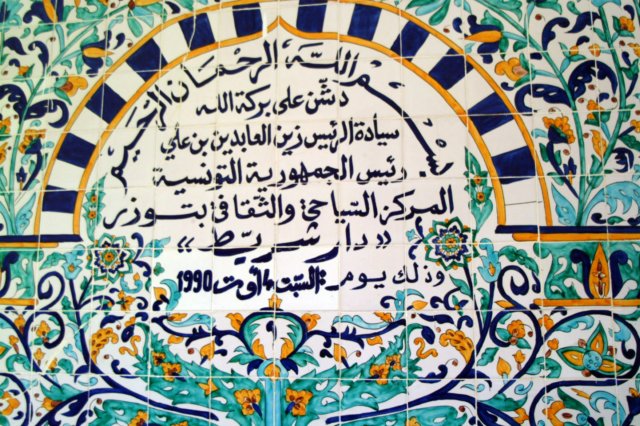 بسم الله الرحمان الرحيم
دشن على بركة الله
سيادة الرئيس زين العابدين بن علي
رئيس الجمهورية التونسية
المركز السياحي والثقافي بتوزر
« دار شريط »
وذلك يوم السبت 4 أوت 1990